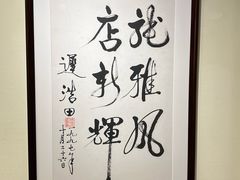 龙雅风
店新輝
遲浩田
一九九七年
十月二十六日